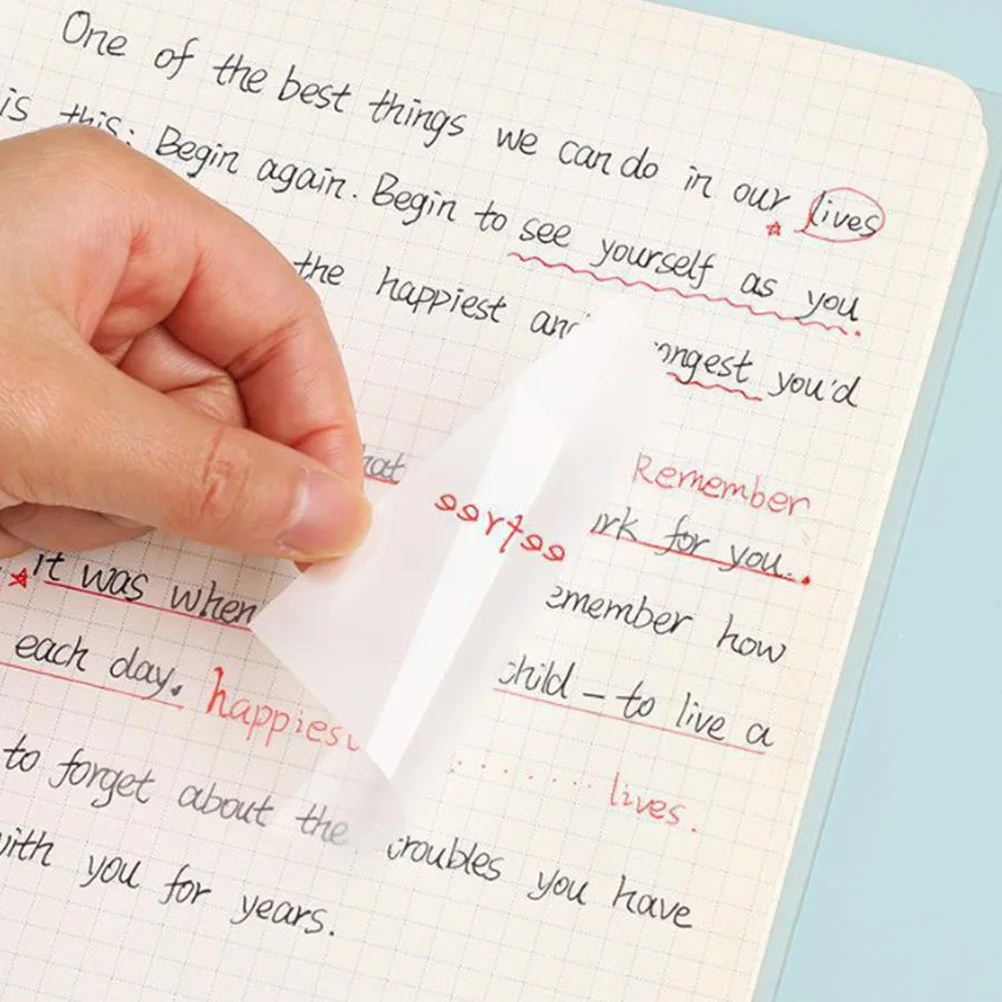 One of the best things we can do in our lives
is this: Begin again. Begin to see yourself as you
the happiest and you'd
Remember
for you.
it was when how
each day. to live a
happiest
lives.
to forget about the troubles you have
with you for years.